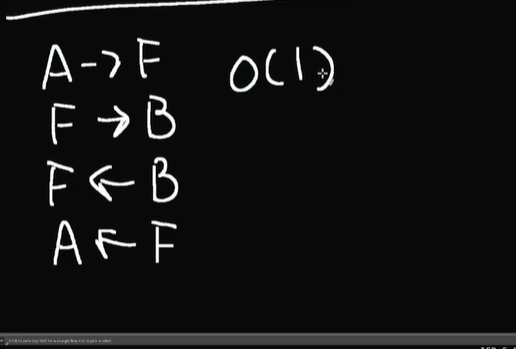 A -> F O(1)
F → B
F ← B
A ← F